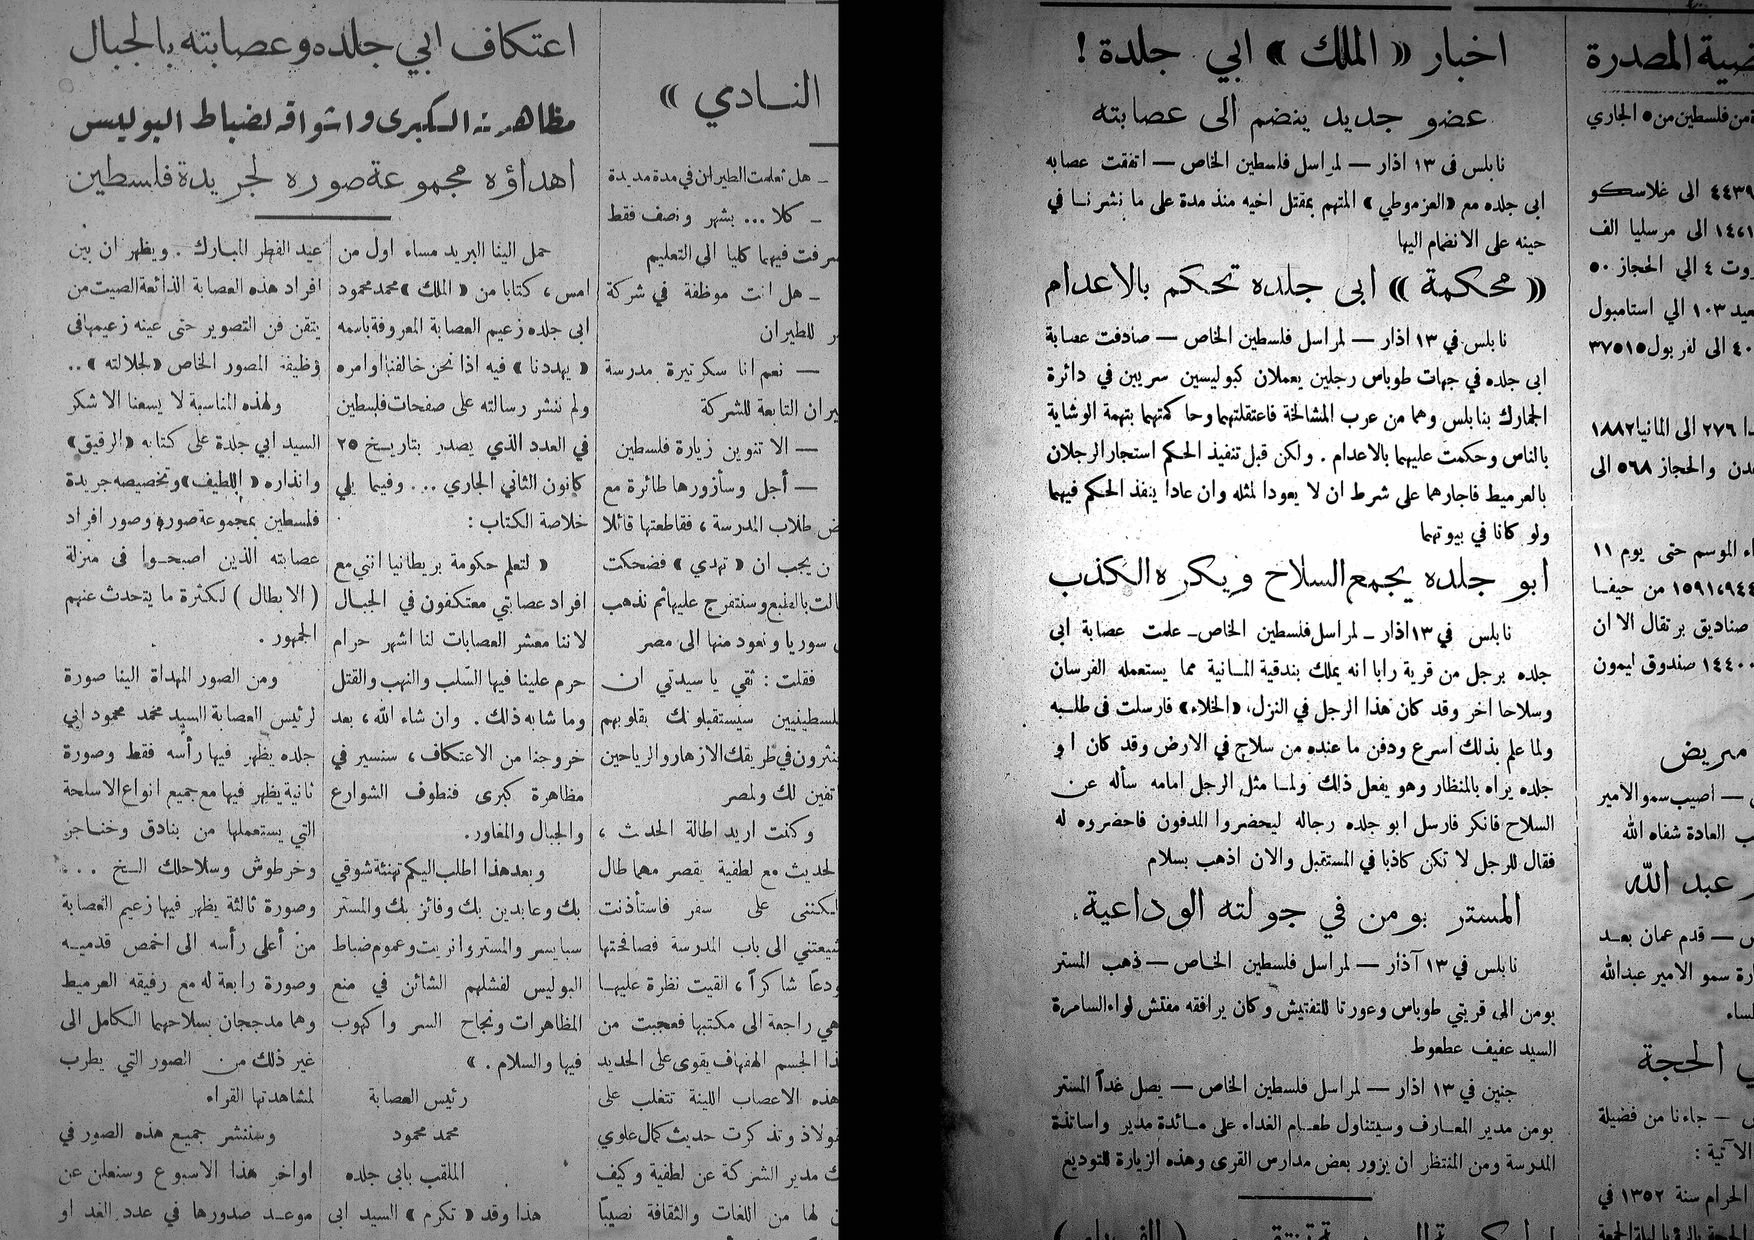 ضية المصدرة
ة من فلسطين من ٥ الجاري
٤٤٣٩ الى غلاسكو
١٤٧١ الى مرسليا الف
وت ٤ الي الحجاز ٥٠
عيد ١٠٣ الي استامبول
٤٠ الى لفربول ٣٧٥١٥
ا ٢٧٦ الى المانيا ١٨٨٢
دن والحجاز ٥٦٨ الى
اء الموسم حتى يوم ١١
١٥٩١،٩٤٤ من حيفا
صناديق برتقال الا ان
١٤٤٠٠ صندوق ليمون
مريض
— اصيب سمو الامير
ب العادة شفاه الله
ر عبد الله
س — قدم عمان بعد
ارة سمو الامير عبدالله
لساء
ي الحجة
س — جاءنا من فضيلة
الآتية :
الحرام سنة ١٣٥٢ في
اخبار « الملك » ابي جلدة !
عضو جديد ينضم الى عصابته
نابلس في ١٣ اذار — لمراسل فلسطين الخاص — اتفقت عصابه
ابى جلده مع «العزموطي» المتهم بمقتل اخيه منذ مدة على ما نشرنا في
حينه على الانضمام اليها
« محكمة » ابى جلده تحكم بالاعدام
نابلس في ١٣ اذار — لمراسل فلسطين الخاص — صادفت عصابة
ابى جلده في جهات طوباس رجلين يعملان كبوليسين سريين في دائرة
الجمارك بنابلس وهما من عرب المشالخة فاعتقلتهما وحاكمتهما بتهمة الوشاية
بالناس وحكمت عليهما بالاعدام . ولكن قبل تنفيذ الحكم استجار الرجلان
بالعرميط فاجارهما على شرط ان لا يعودا لمثله وان عادا ينفذ الحكم فيهما
ولو كانا في بيوتهما
ابو جلده يجمع السلاح ويكره الكذب
نابلس في ١٣ اذار ـ لمراسل فلسطين الخاص ـ علمت عصابة ابي
جلده برجل من قرية رابا انه يملك بندقية المانية مما يستعمله الفرسان
وسلاحا اخر وقد كان هذا الرجل في النزل، «الخلاء» فارسلت في طلبه
ولما علم بذلك اسرع ودفن ما عنده من سلاح في الارض وقد كان ا و
جلده يراه بالمنظار وهو يفعل ذلك ولما مثل الرجل امامه سأله عن
السلاح فانكر فارسل ابو جلده رجاله ليحضروا المدفون فاحضروه له
فقال للرجل لا تكن كاذبا في المستقبل والان اذهب بسلام
المستر بومن في جولته الوداعية.
نابلس في ١٣ آذار — لمراسل فلسطين الخاص — ذهب المستر
بومن الى قريتي طوباس وعورتا للتفتيش وكان يرافقه مفتش لواء السامرة
السيد عفيف عطعوط
جنين في ١٣ اذار — لمراسل فلسطين الخاص — يصل غداً المستر
بومن مدير المعارف وسيتناول طعام الغداء على مائدة مدير واساتذة
المدرسة ومن المنتظر ان يزور بعض مدارس القرى وهذه الزيارة للتوديع
النادي »
ـ هل تعلمت الطيران في مدة مديدة
ـ كلا ... بشهر ونصف فقط
سرفت فيهما كليا الى التعليم
ـ هل انت موظفة في شركة
ر للطيران
— نعم انا سكرتيرة مدرسة
يران التابعة للشركة
— الا تنوين زيارة فلسطين
— أجل وسأزورها طائرة مع
ض طلاب المدرسة ، فقاطعتها قائلا
ن يجب ان « تهدي » فضحكت
الت بالطبع وسنتفرج عليها ثم نذهب
سوريا ونعود منها الى مصر
فقلت : ثقي يا سيدتي ان
لسطينيين سيستقبلونك بقلوبهم
ينثرون في طريقك الازهار والرياحين
تفين لك ولمصر
وكنت اريد اطالة الحديث ،
لحديث مع لطفية يقصر مهما طال
لكنني على سفر فاستأذنت
شيعتني الى باب المدرسة فصافحتها
ودعاً شاكراً ، القيت نظرة عليها
هي راجعة الى مكتبها فعجبت من
ذا الجسم الهفهاف يقوى على الحديد
هذه الاعصاب اللينة تتغلب على
فولاذ وتذكرت حديث كمال علوي
ك مدير الشركة عن لطفية وكيف
ن لها من اللغات والثقافة نصيباً
اعتكاف ابي جلده وعصابته بالجبال
مظاهرته الكبرى واشواقه لضباط البوليس
اهداؤه مجموعة صوره لجريدة فلسطين
حمل الينا البريد مساء اول من
امس ، كتابا من « الملك » محمد محمود
ابى جلده زعيم العصابة المعروفة باسمه
« يهددنا » فيه اذا نحن خالفنا اوامره
ولم ننشر رسالته على صفحات فلسطين
في العدد الذي يصدر بتاريخ ٢٥
كانون الثاني الجاري ... وفيما يلي
خلاصة الكتاب :
« لتعلم حكومة بريطانيا انني مع
افراد عصابتي معتكفون في الجبال
لاننا معشر العصابات لنا اشهر حرام
حرم علينا فيها السلب والنهب والقتل
وما شابه ذلك . وان شاء الله ، بعد
خروجنا من الاعتكاف ، سنسير في
مظاهرة كبرى فنطوف الشوارع
والجبال والمغاور.
وبعد هذا اطلب اليكم تهنئة شوقي
بك وعابدين بك وفائز بك والمستر
سبايسر والمستر وانريت وعموم ضباط
البوليس لفشلهم الشائن في منع
المظاهرات ونجاح السر واكهوب
فيها والسلام . »
رئيس العصابة
محمد محمود
الملقب بابى جلده
هذا وقد « تكرم » السيد ابى
عيد الفطر المبارك . ويظهر ان بين
افراد هذه العصابة الذائعة الصيت من
يتقن فن التصوير حتى عينه زعيمها في
وظيفة المصور الخاص «لجلالته» ..
ولهذه المناسبة لا يسعنا الا شكر
السيد ابي جلدة على كتابه «الرقيق»
وانذاره « اللطيف» وتخصيصه جريدة
فلسطين بمجموعة صوره وصور افراد
عصابته الذين اصبحوا في منزلة
( الابطال ) لكثرة ما يتحدث عنهم
الجمهور .
ومن الصور المهداة الينا صورة
لرئيس العصابة السيد محمد محمود ابي
جلده يظهر فيها رأسه فقط وصورة
ثانية يظهر فيها مع جميع انواع الاسلحة
التي يستعملها من بنادق وخناجر
وخرطوش وسلاحلك الخ ...
وصورة ثالثة يظهر فيها زعيم العصابة
من أعلى رأسه الى اخمص قدميه
وصورة رابعة له مع رفيقه العرميط
وهما مدججان بسلاحهما الكامل الى
غير ذلك من الصور التي يطرب
لمشاهدتها القراء
وسننشر جميع هذه الصور في
اواخر هذا الاسبوع وسنعلن عن
موعد صدورها في عدد الغد او